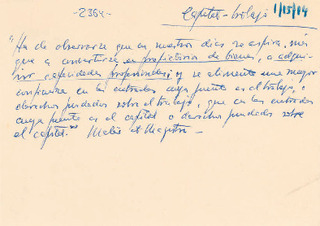 -2364-
Capital-trabajo 1/15/14
"Ha de observarse que en nuestros días se aspira, más
que a convertirse en propietario de bienes, a adqui-
rir capacidades profesionales; y se alimenta una mayor
confianza en las entradas cuya fuente es el trabajo, o
derechos fundados sobre el trabajo, que en las entradas
cuya fuente es el capital o derechos fundados sobre
el capital." Mater et Magistra -